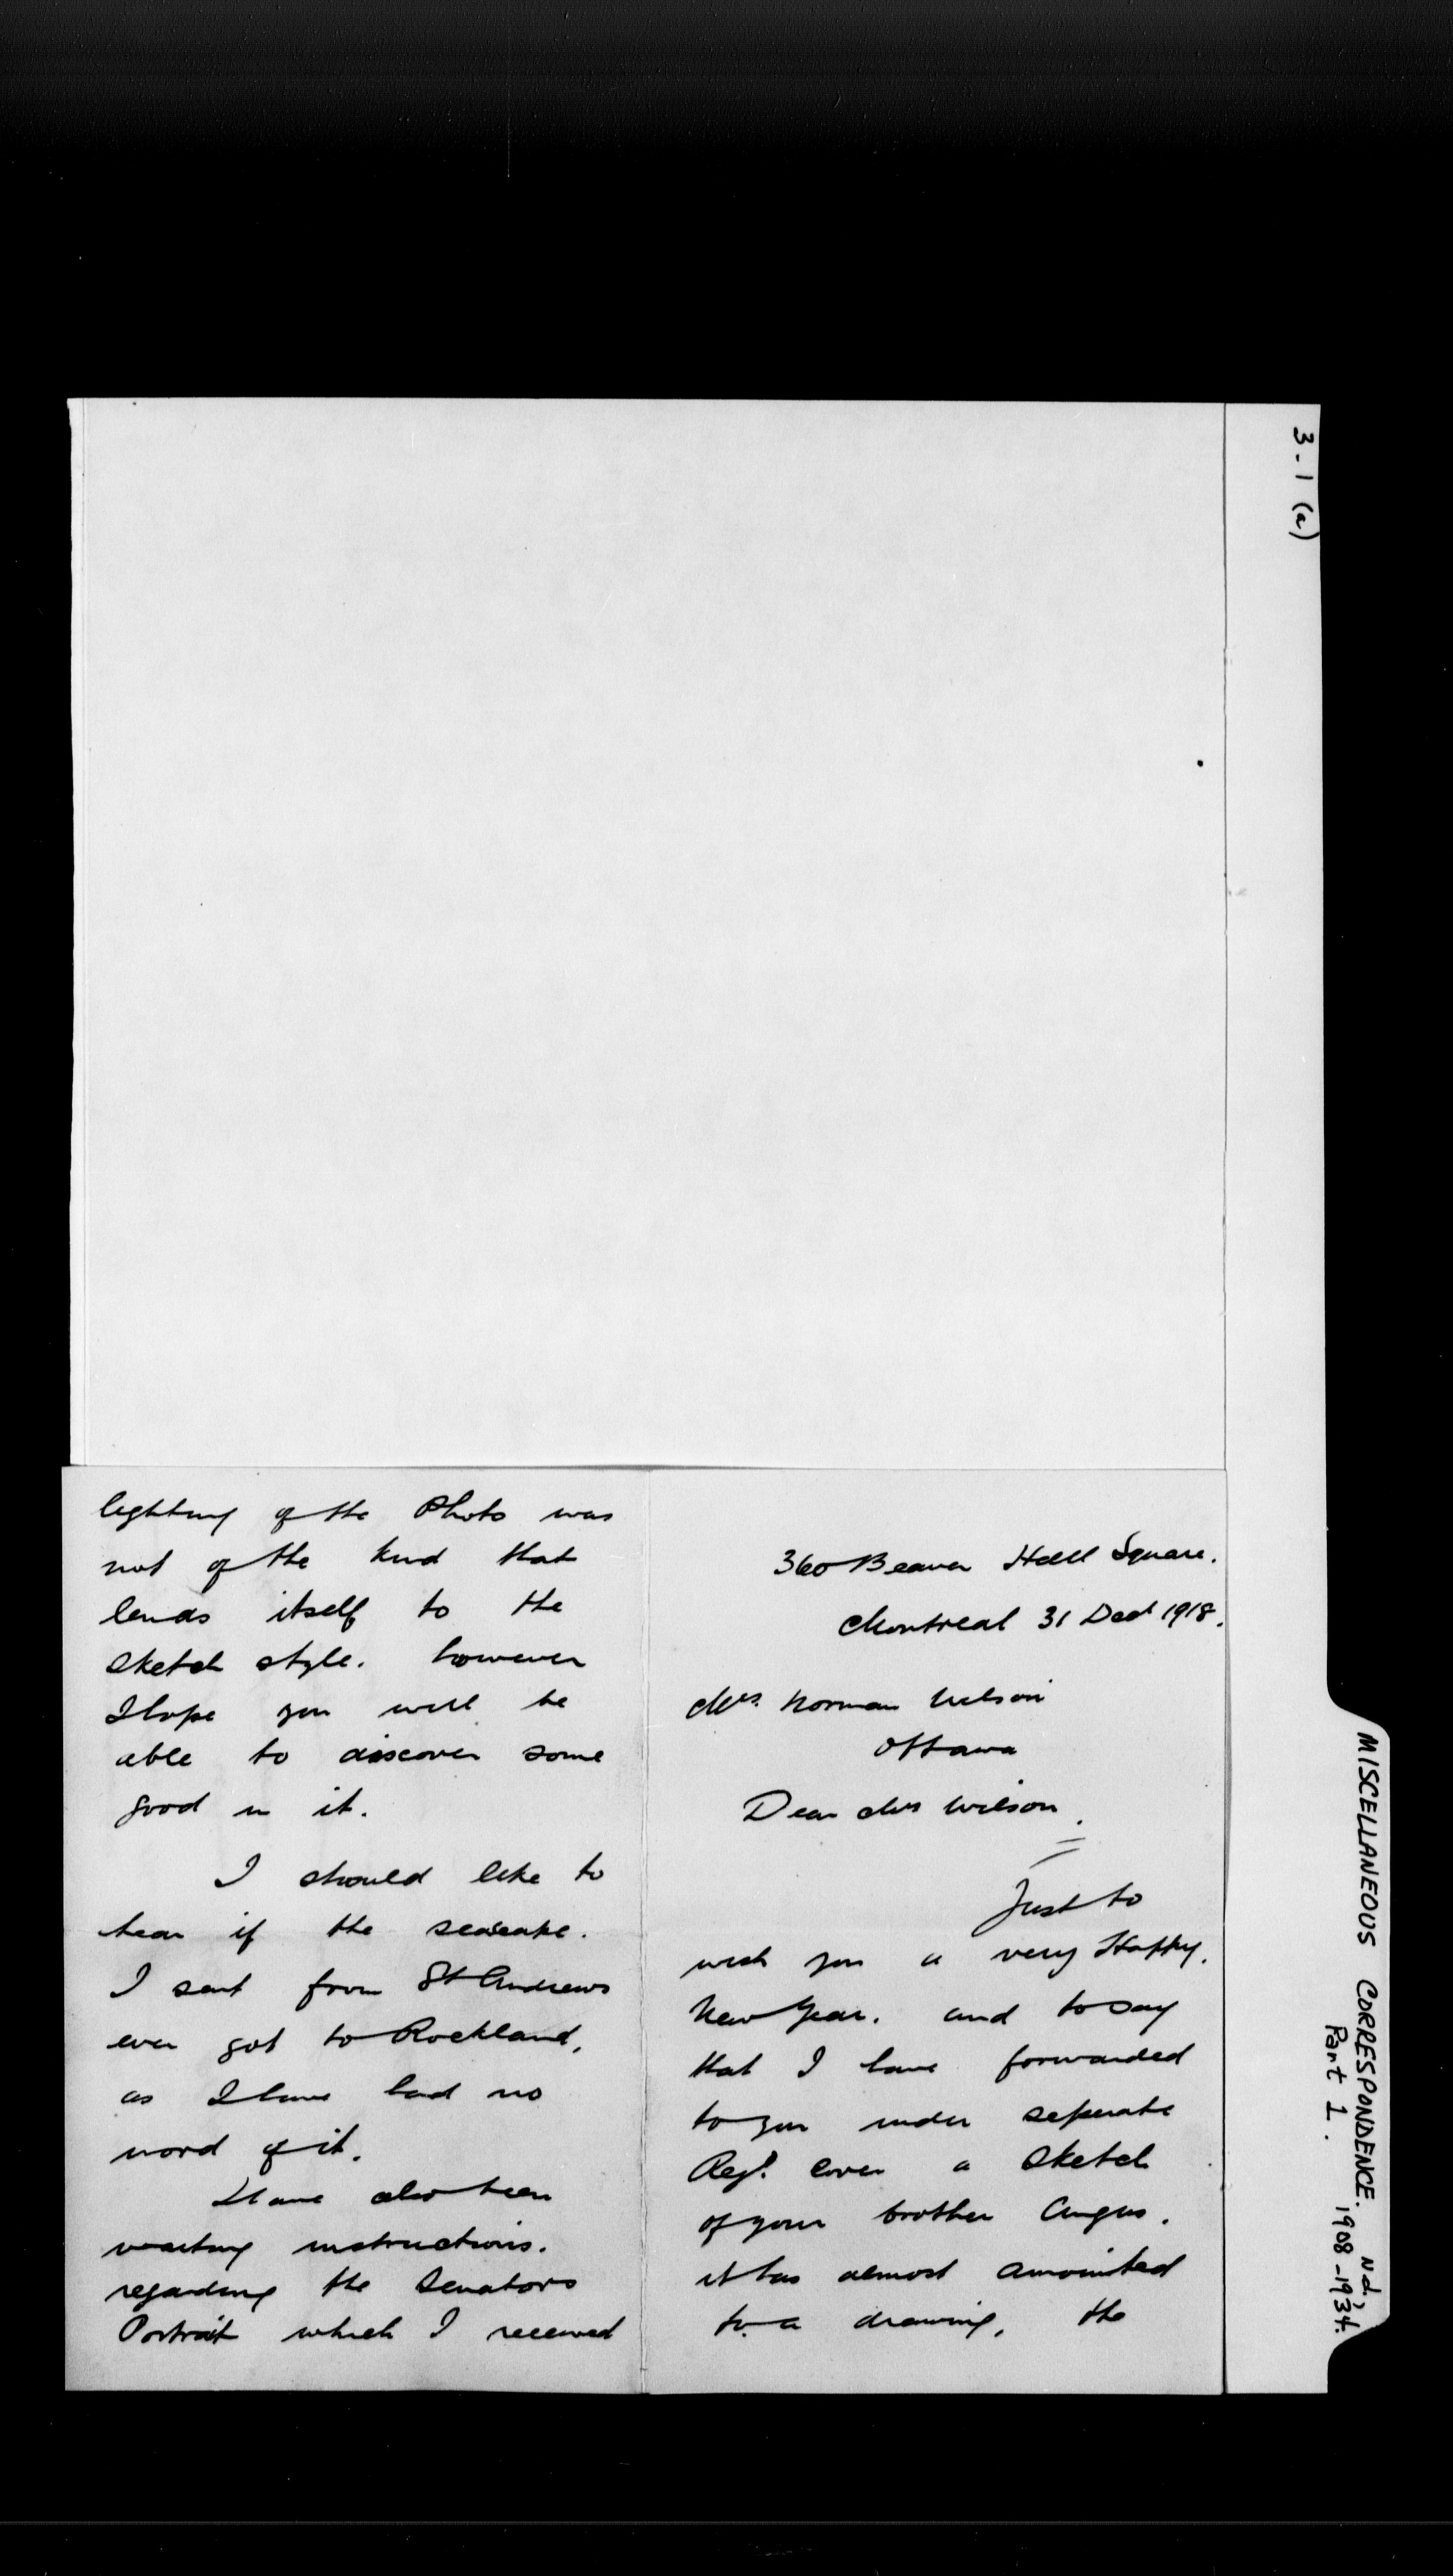 3-1 (a)
MISCELLANEOUS CORRESPONDENCE. N.d.,
Part 1. 1908-1934.
360 Beaver Hall Square.
Montreal 31 Dec 1918.
Mrs. Norman Wilson
Ottawa
Dear Mrs Wilson.
Just to
wish you a very Happy.
New Year. and to say
that I have forwarded
to you under seperate
Regd. cover a sketch
of your brother Angus.
it has almost amounted
to a drawing, the
lighting of the Photo was
not of the kind that
lends itself to the
sketch style. however
I hope you will be
able to discover some
good in it.
I should like to
hear if the
I sent from St Andrews
ever got to Rockland,
as I have had no
word of it.
Have also been
waiting instructions.
regarding the Senators
Portrait which I received